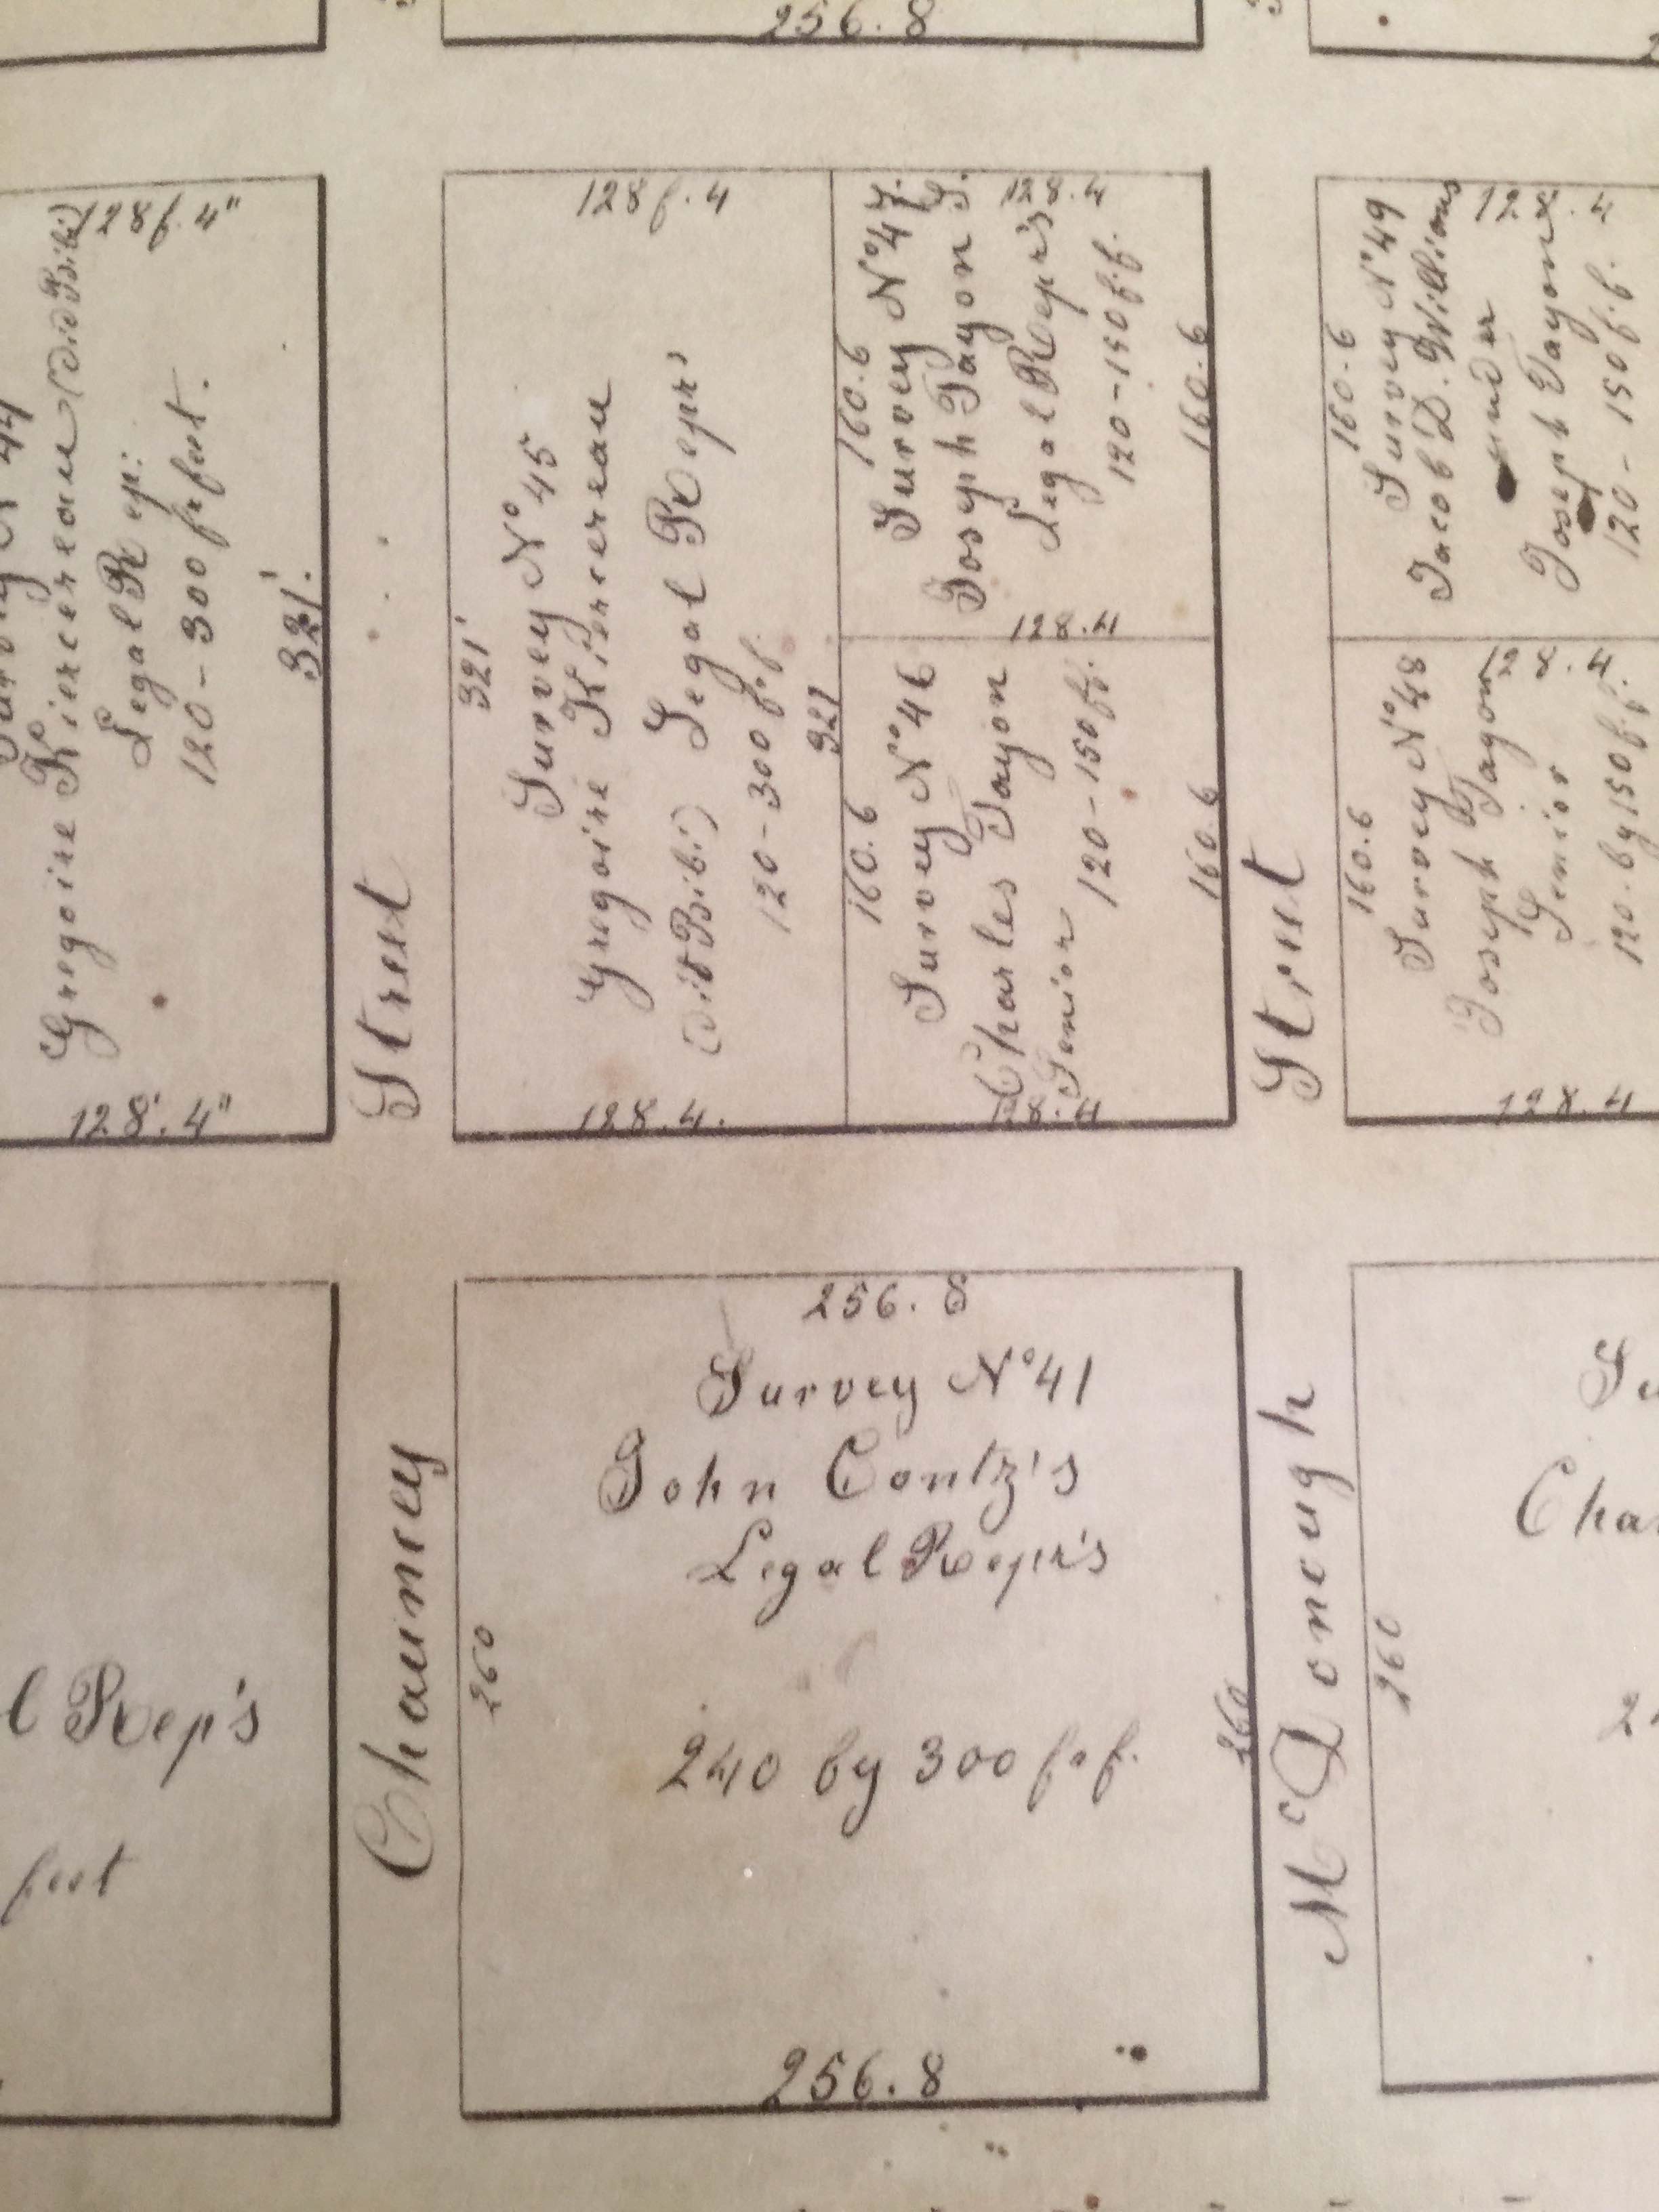 256.8
128 f. 4"
Gregoire Kiercereau (dit Bibi)
Legal Rep:
120 - 300 fr feet.
321'.
128'. 4"
Chauncey Street
128 f. 4
321'
Survey No 45
Gregoire Kiercereau
(dit Bibi) Legal Repr's
120 - 300 f.f.
321
128.4.
128.4
160.6
Survey No 47.
Joseph Tayon J.
Legal Repr's
120 - 150 f.f.
160.6
128.4
160.6
Survey No 46
Charles Tayon
Senior
120 - 150 ff.
160.6
128.4
McDonough Street
128.4
160.6
Survey No 49
Jacob D. Williams
under
Joseph Tayon
120 - 150 f.f.
128.4.
160.6
Survey No 48
Joseph Tayon
Senior
120. by 150 f.f.
128.4
l Rep's
feet
256.8
Survey No 41
John Contz's
Legal Repr's
260
260
240 by 300 f.f.
256.8
Su
Cha
260